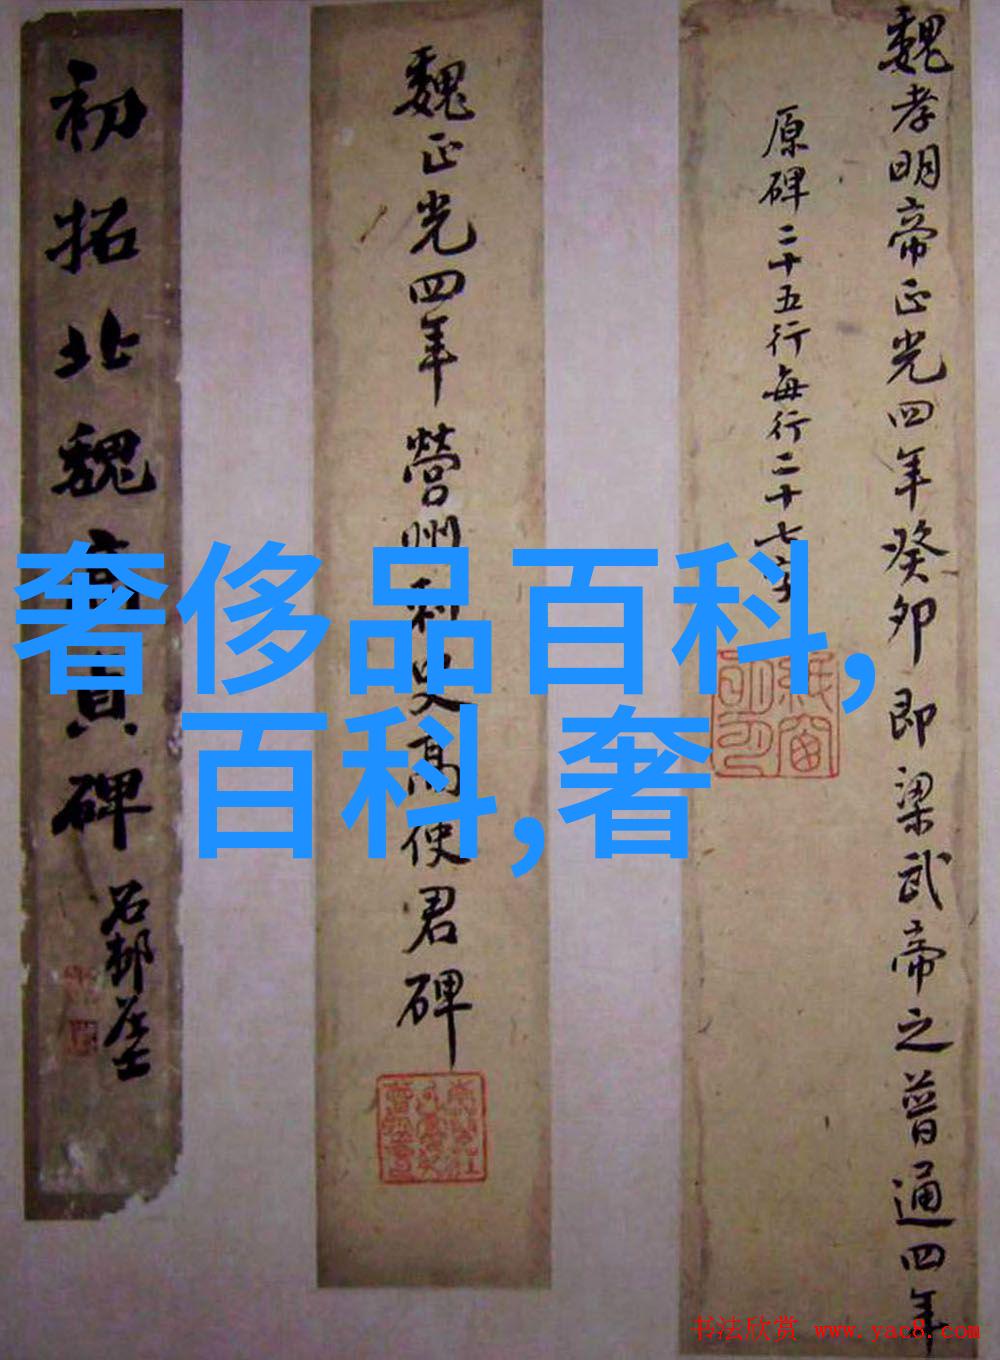 魏孝明帝正光四年癸卯即梁武帝之普通四年
原碑二十五行每行二十七字
魏正光四年營州刺史高使君碑
初拓北魏高貞碑
奢侈品百科,
百科,奢
书法欣赏 www.yac8.com